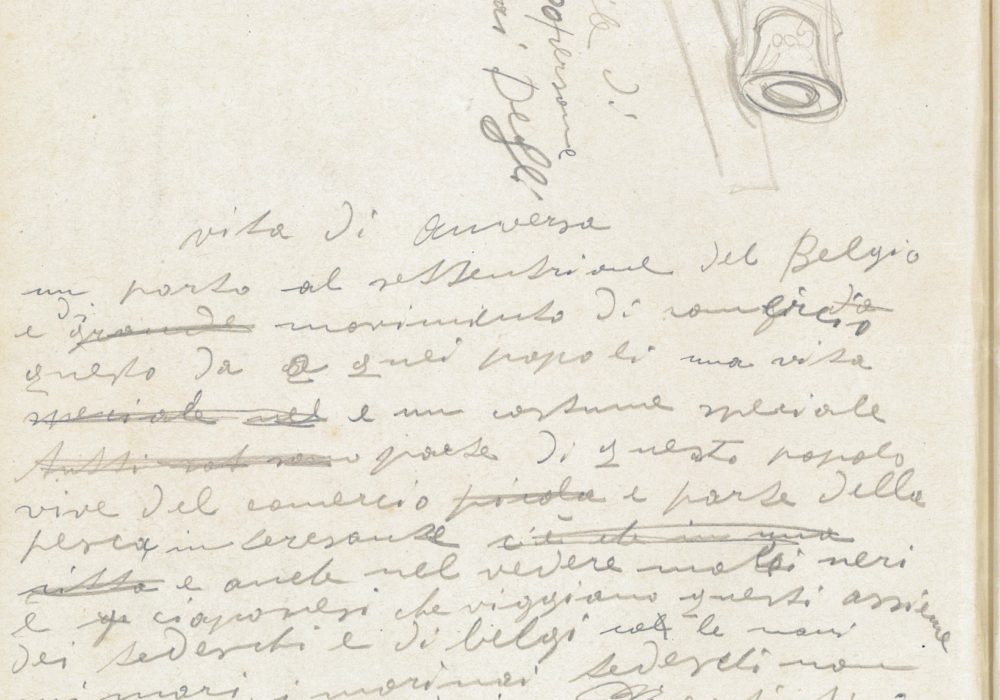 di
Degli
vita di Anversa
un porto al settentrione del Belgio
e di grande movimento di comercio
questo da a quei popoli una vita
speciale nel e un costume speciale
tutti sono parte di questo popolo
vive del comercio picola e parte della
pesca, interesante c'è che in una
citta e anche nel vedere molti neri
e ciaponesi che viggiano questi assieme
dei tedeschi e di belgi le navi
i marinai tedeschi non